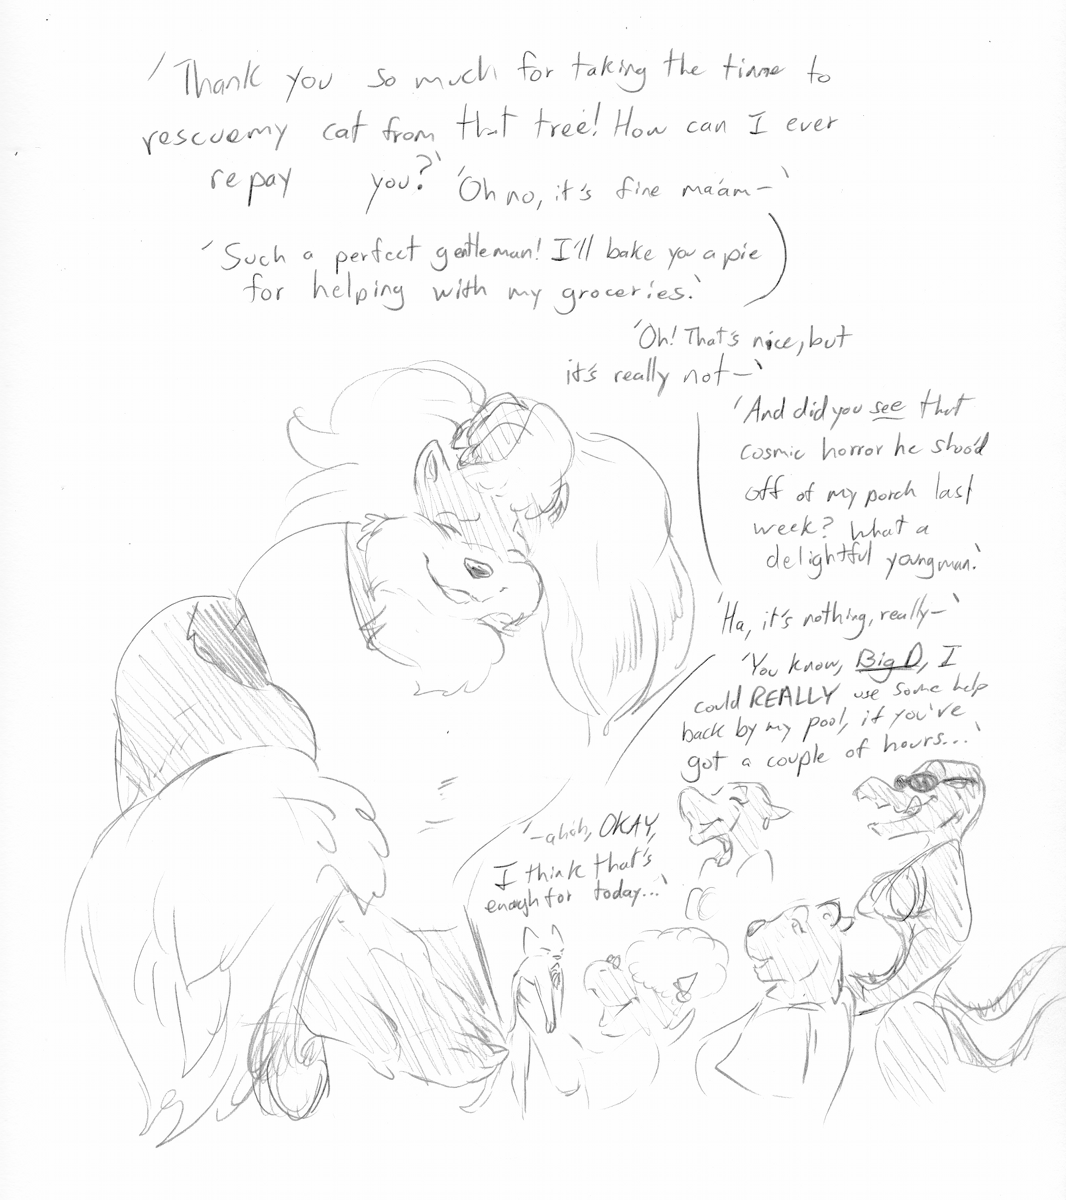 'Thank you so much for taking the time to
rescue my cat from that tree! How can I ever
repay you?' 'Oh no, it's fine ma'am—'
'Such a perfect gentleman! I'll bake you a pie
for helping with my groceries.'
'Oh! That's nice, but
it's really not—'
'And did you see that
cosmic horror he shoo'd
off of my porch last
week? What a
delightful young man.'
'Ha, it's nothing, really—'
'You know, Big D, I
could REALLY use some help
back by my pool, if you've
got a couple of hours...'
'—ahah, OKAY,
I think that's
enough for today...'